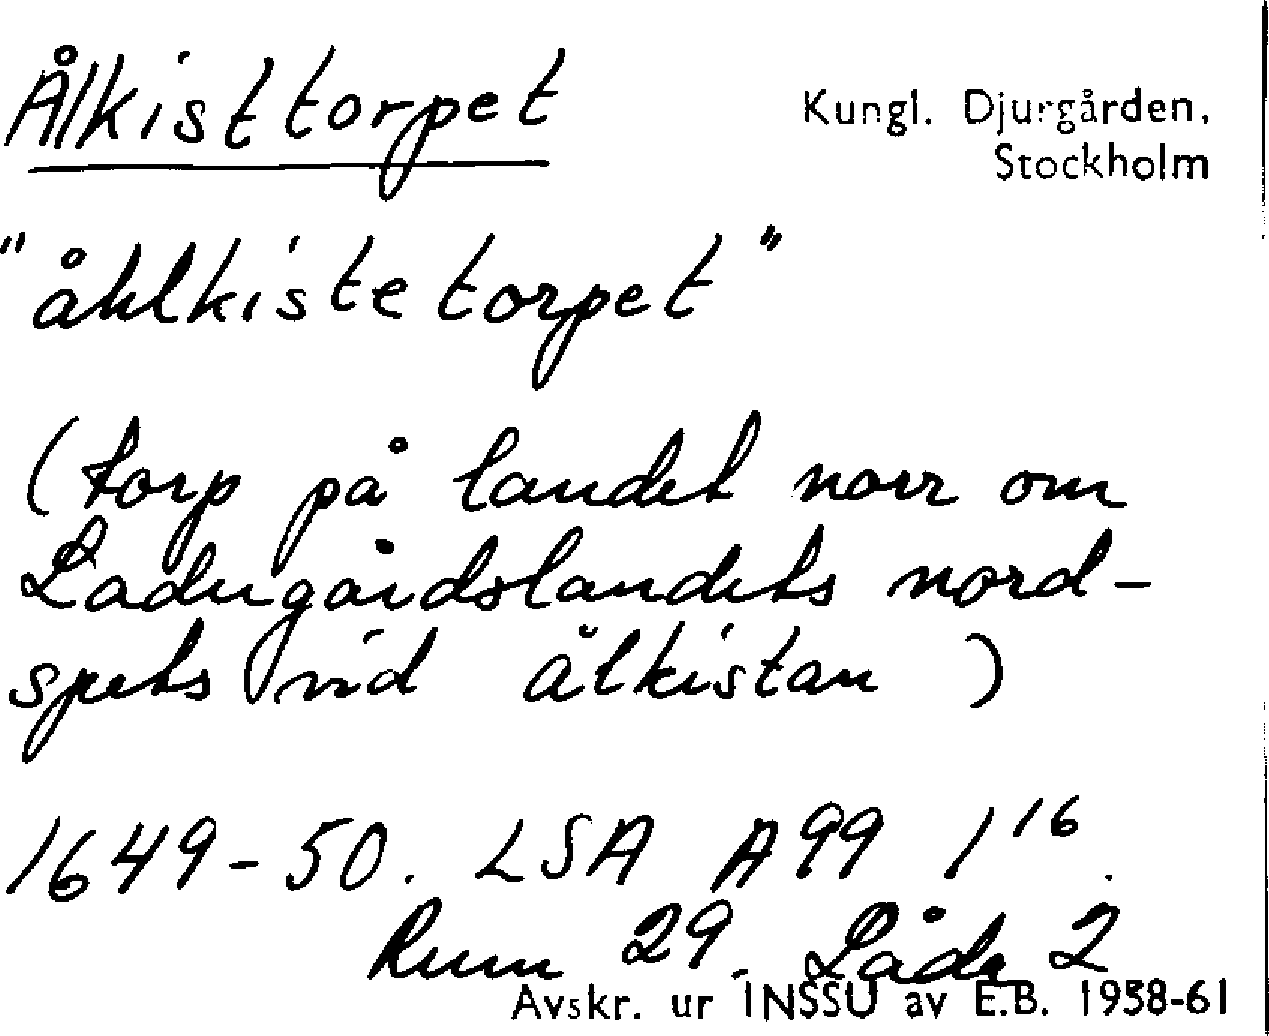 Ålkisttorpet
Kungl. Djurgården,
Stockholm
"åhlkistetorpet"
(torp på landet norr om
Ladugårdslandets nord-
spets vid ålkistan)
1649-50. LSA A99 1¹⁶.
Rum 29. Låda 2
Avskr. ur INSSU av E.B. 1958-61